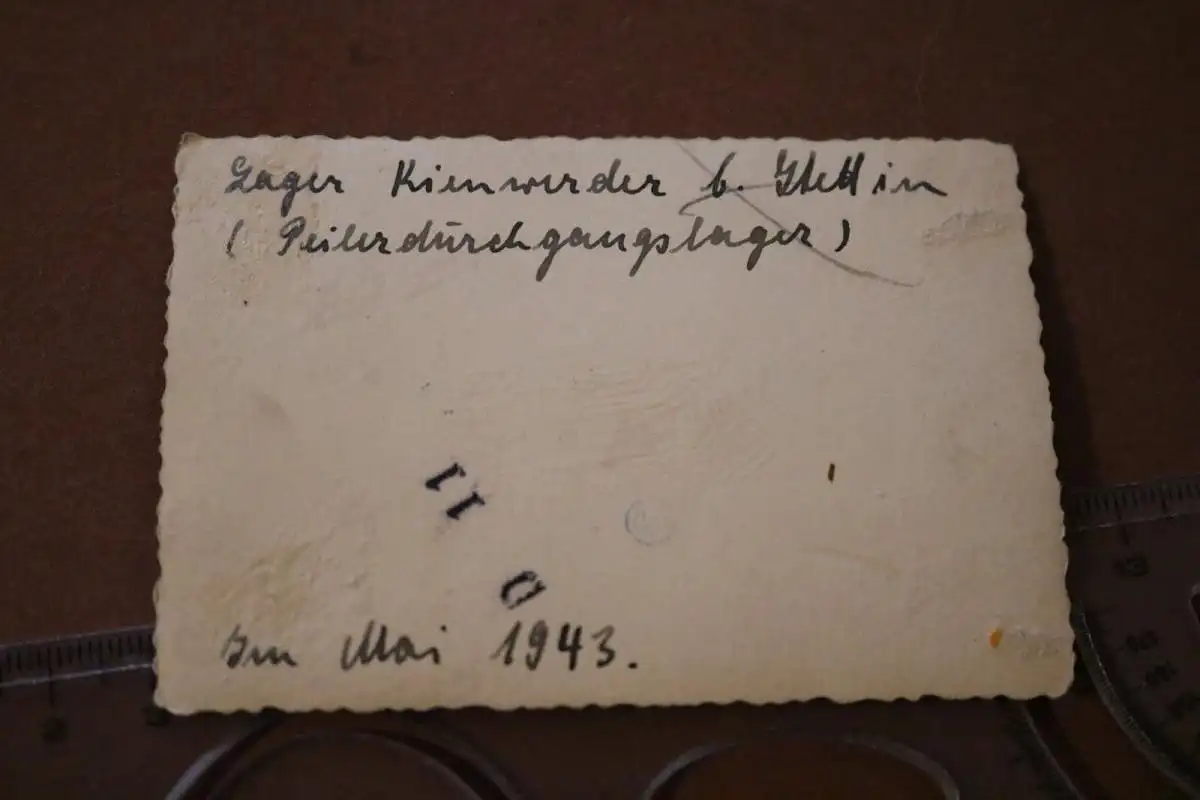 Lager Kienwerder b. Stettin
( Peilerdurchgangslager )
11
0
Im Mai 1943.